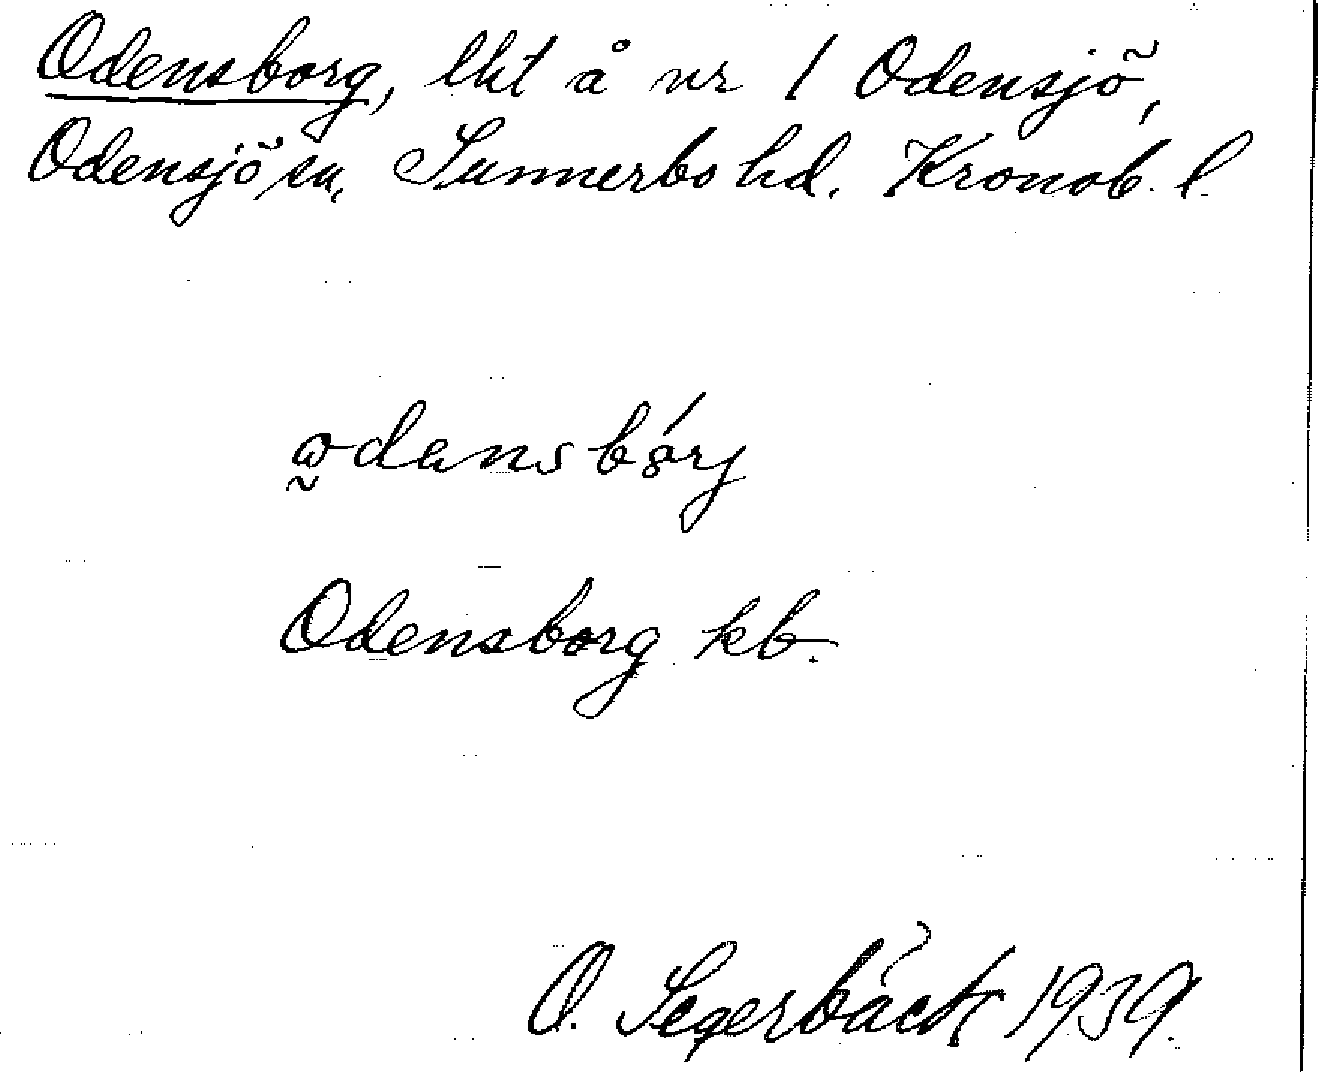 Odensborg, lht å nr 1 Odensjö,
Odensjö sn, Sunnerbo hd. Kronob. l.
Odensborg kb.
O. Segerbäck 1939.